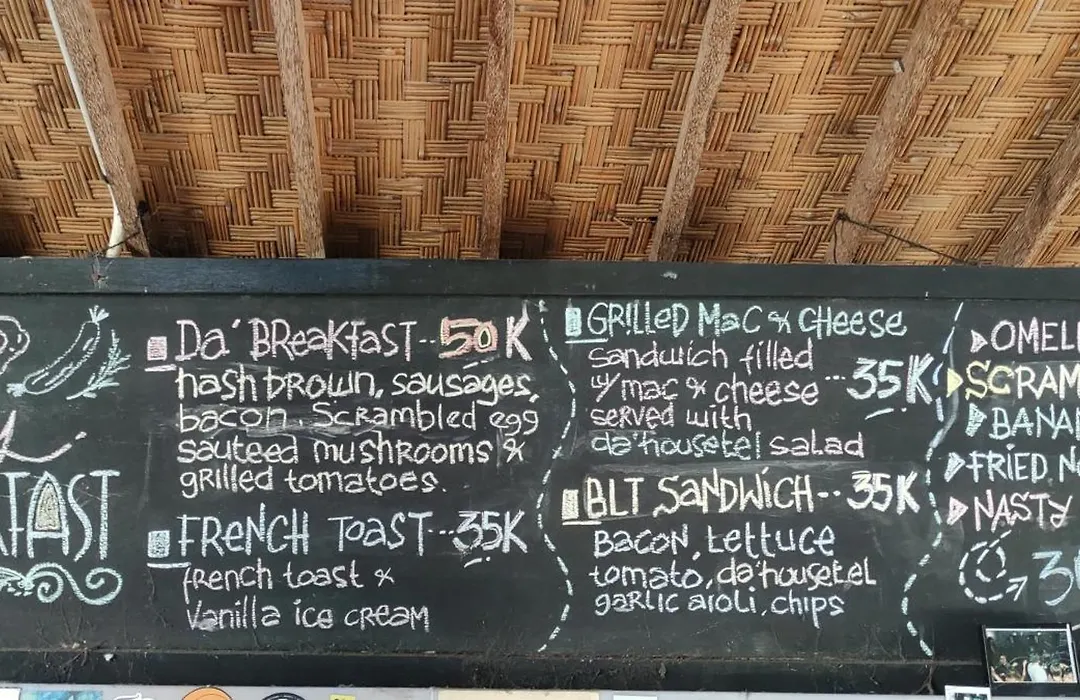 FAST
Da' BReakfasT -- 50 K
hash brown, sausages,
bacon. Scrambled egg
sauteed mushrooms &
grilled tomatoes.
FRENCH TOAST -- 35K
french toast &
Vanilla ice cream
GRILLED MaC & CHeese
sandwich filled
w/mac & cheese --- 35K
served with
da'housetel salad
BLT SANDWICH -- 35K
Bacon, Lettuce
tomato, da'housetel
garlic aioli, chips
FRIED
NASTY